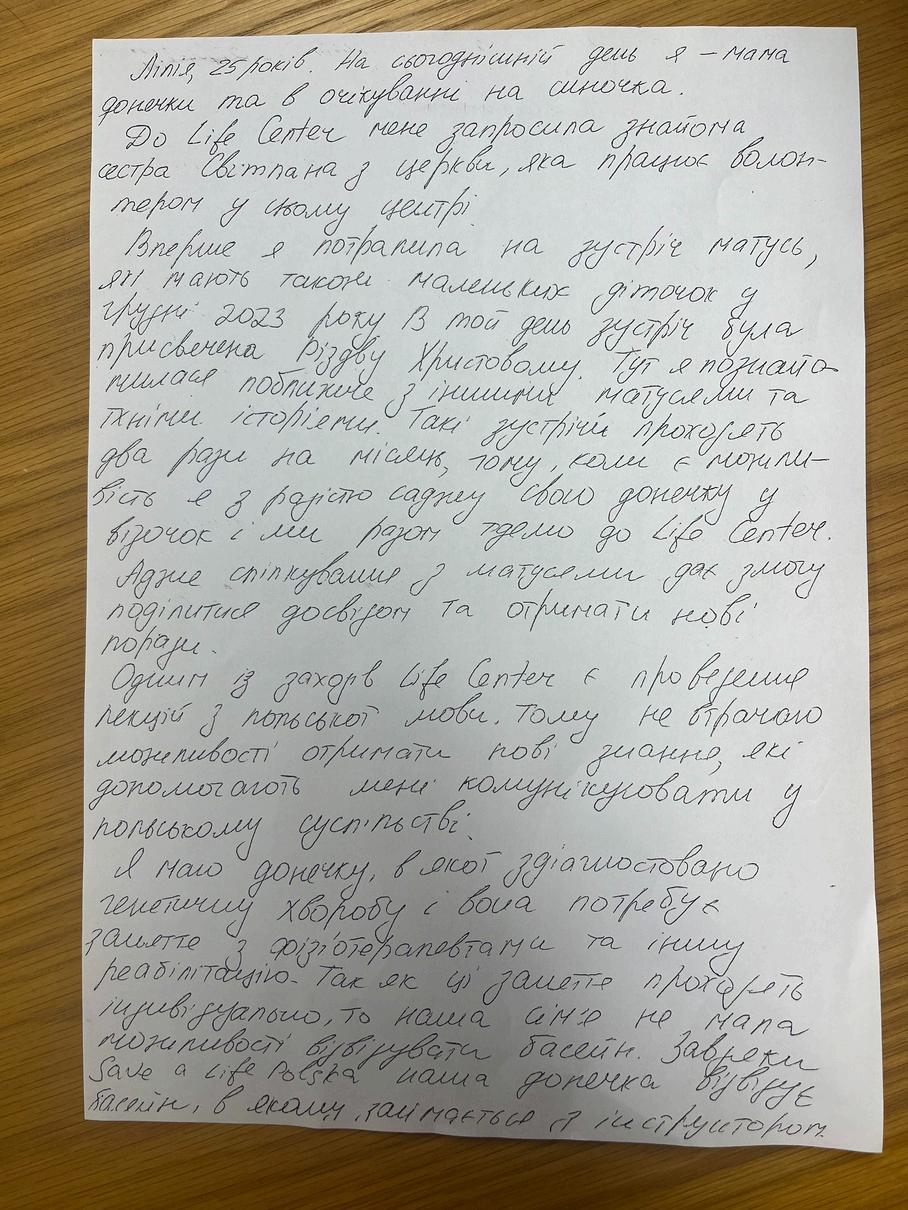 Лілія, 25 років. На сьогоднішній день я – мама
донечки та в очікуванні на синочка.
До Life Center мене запросила знайома
сестра Світлана з церкви, яка працює волон-
тером у цьому центрі.
Вперше я потрапила на зустріч матусь,
які мають також маленьких діточок у
грудні 2023 року. В той день зустріч була
присвячена Різдву Христовому. Тут я познайо-
милася поближче з іншими матусями та
їхніми історіями. Такі зустрічи проходять
два рази на місяць, тому, коли є можли-
вість я з радістю саджу свою донечку у
візочок і ми разом їдемо до Life Center.
Адже спілкування з матусями дає змогу
поділитися досвідом та отримати нові
поради.
Одним із заходів Life Center є проведення
лекцій з польської мови. Тому не втрачаю
можливості отримати нові знання, які
допомагають мені комунікуювати у
польському суспільстві.
Я маю донечку, в якої здіагностовано
генетичну хворобу і вона потребує
заняття з фізіотерапевтами та іншу
реабілітацію. Так як ці заняття проходять
індивідуально, то наша сім'я не мала
можливості відвідувати басейн. Завдяки
Save a Life Polska наша донечка відвідує
басейн, в якому займається з інструктором.